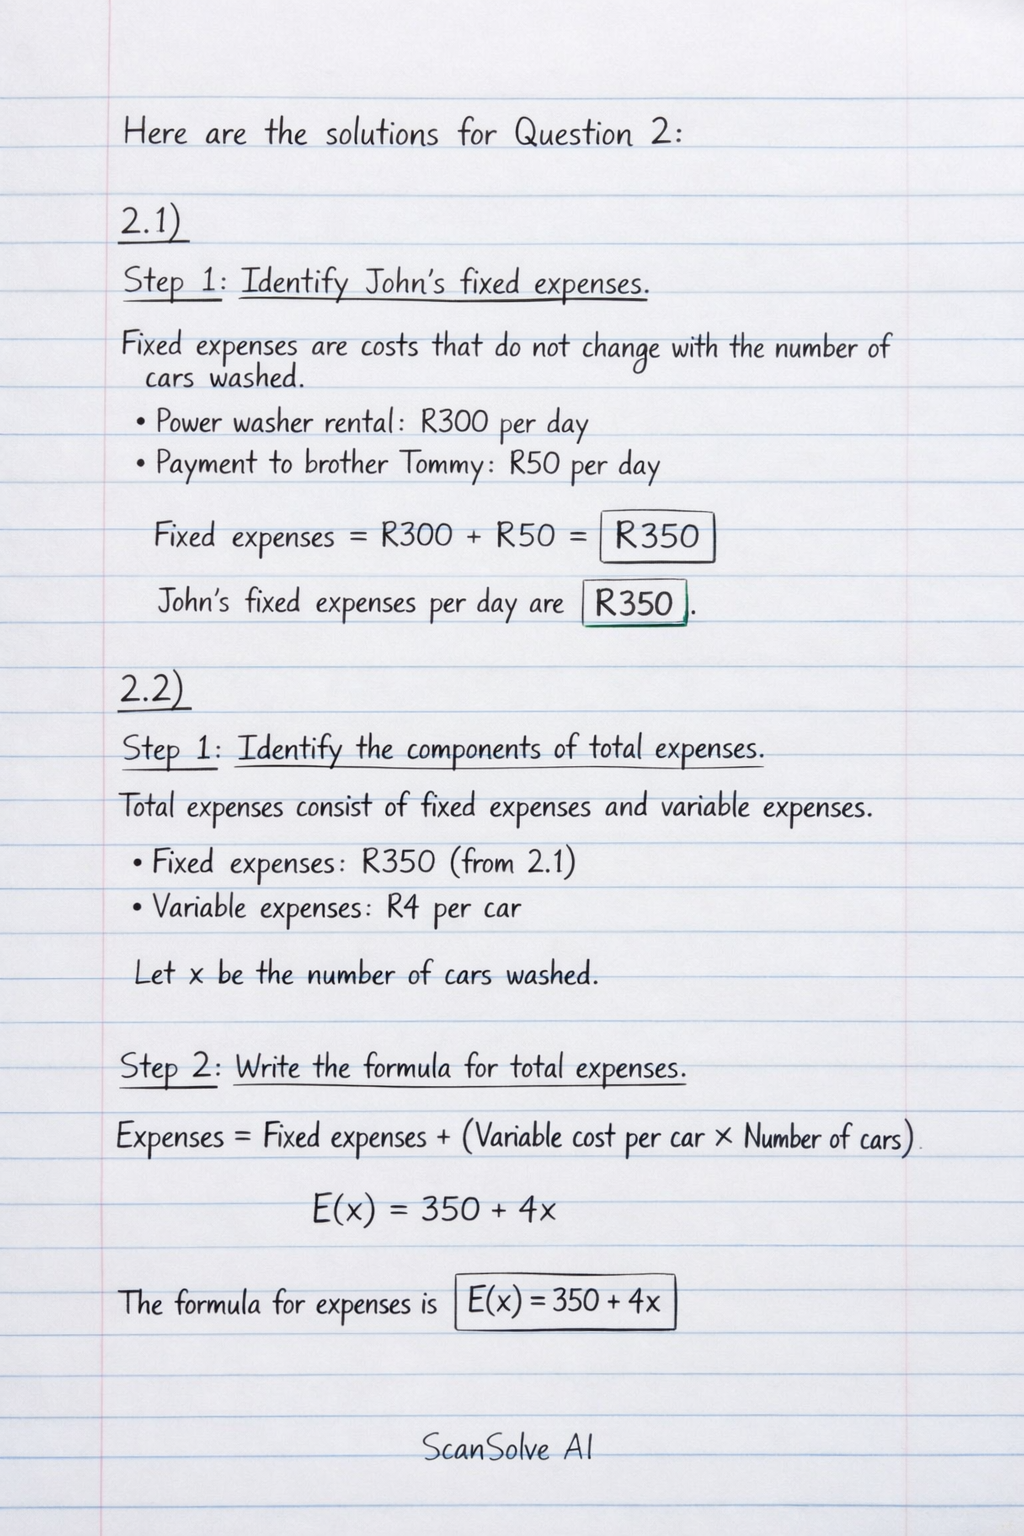 Here are the solutions for Question 2:
2.1)
Step 1: Identify John's fixed expenses.
Fixed expenses are costs that do not change with the number of
cars washed.
• Power washer rental: R300 per day
• Payment to brother Tommy: R50 per day
Fixed expenses = R300 + R50 = R350
John's fixed expenses per day are R350.
2.2)
Step 1: Identify the components of total expenses.
Total expenses consist of fixed expenses and variable expenses.
• Fixed expenses: R350 (from 2.1)
• Variable expenses: R4 per car
Let x be the number of cars washed.
Step 2: Write the formula for total expenses.
Expenses = Fixed expenses + (Variable cost per car × Number of cars).
E(x) = 350 + 4x
The formula for expenses is E(x) = 350 + 4x
ScanSolve AI